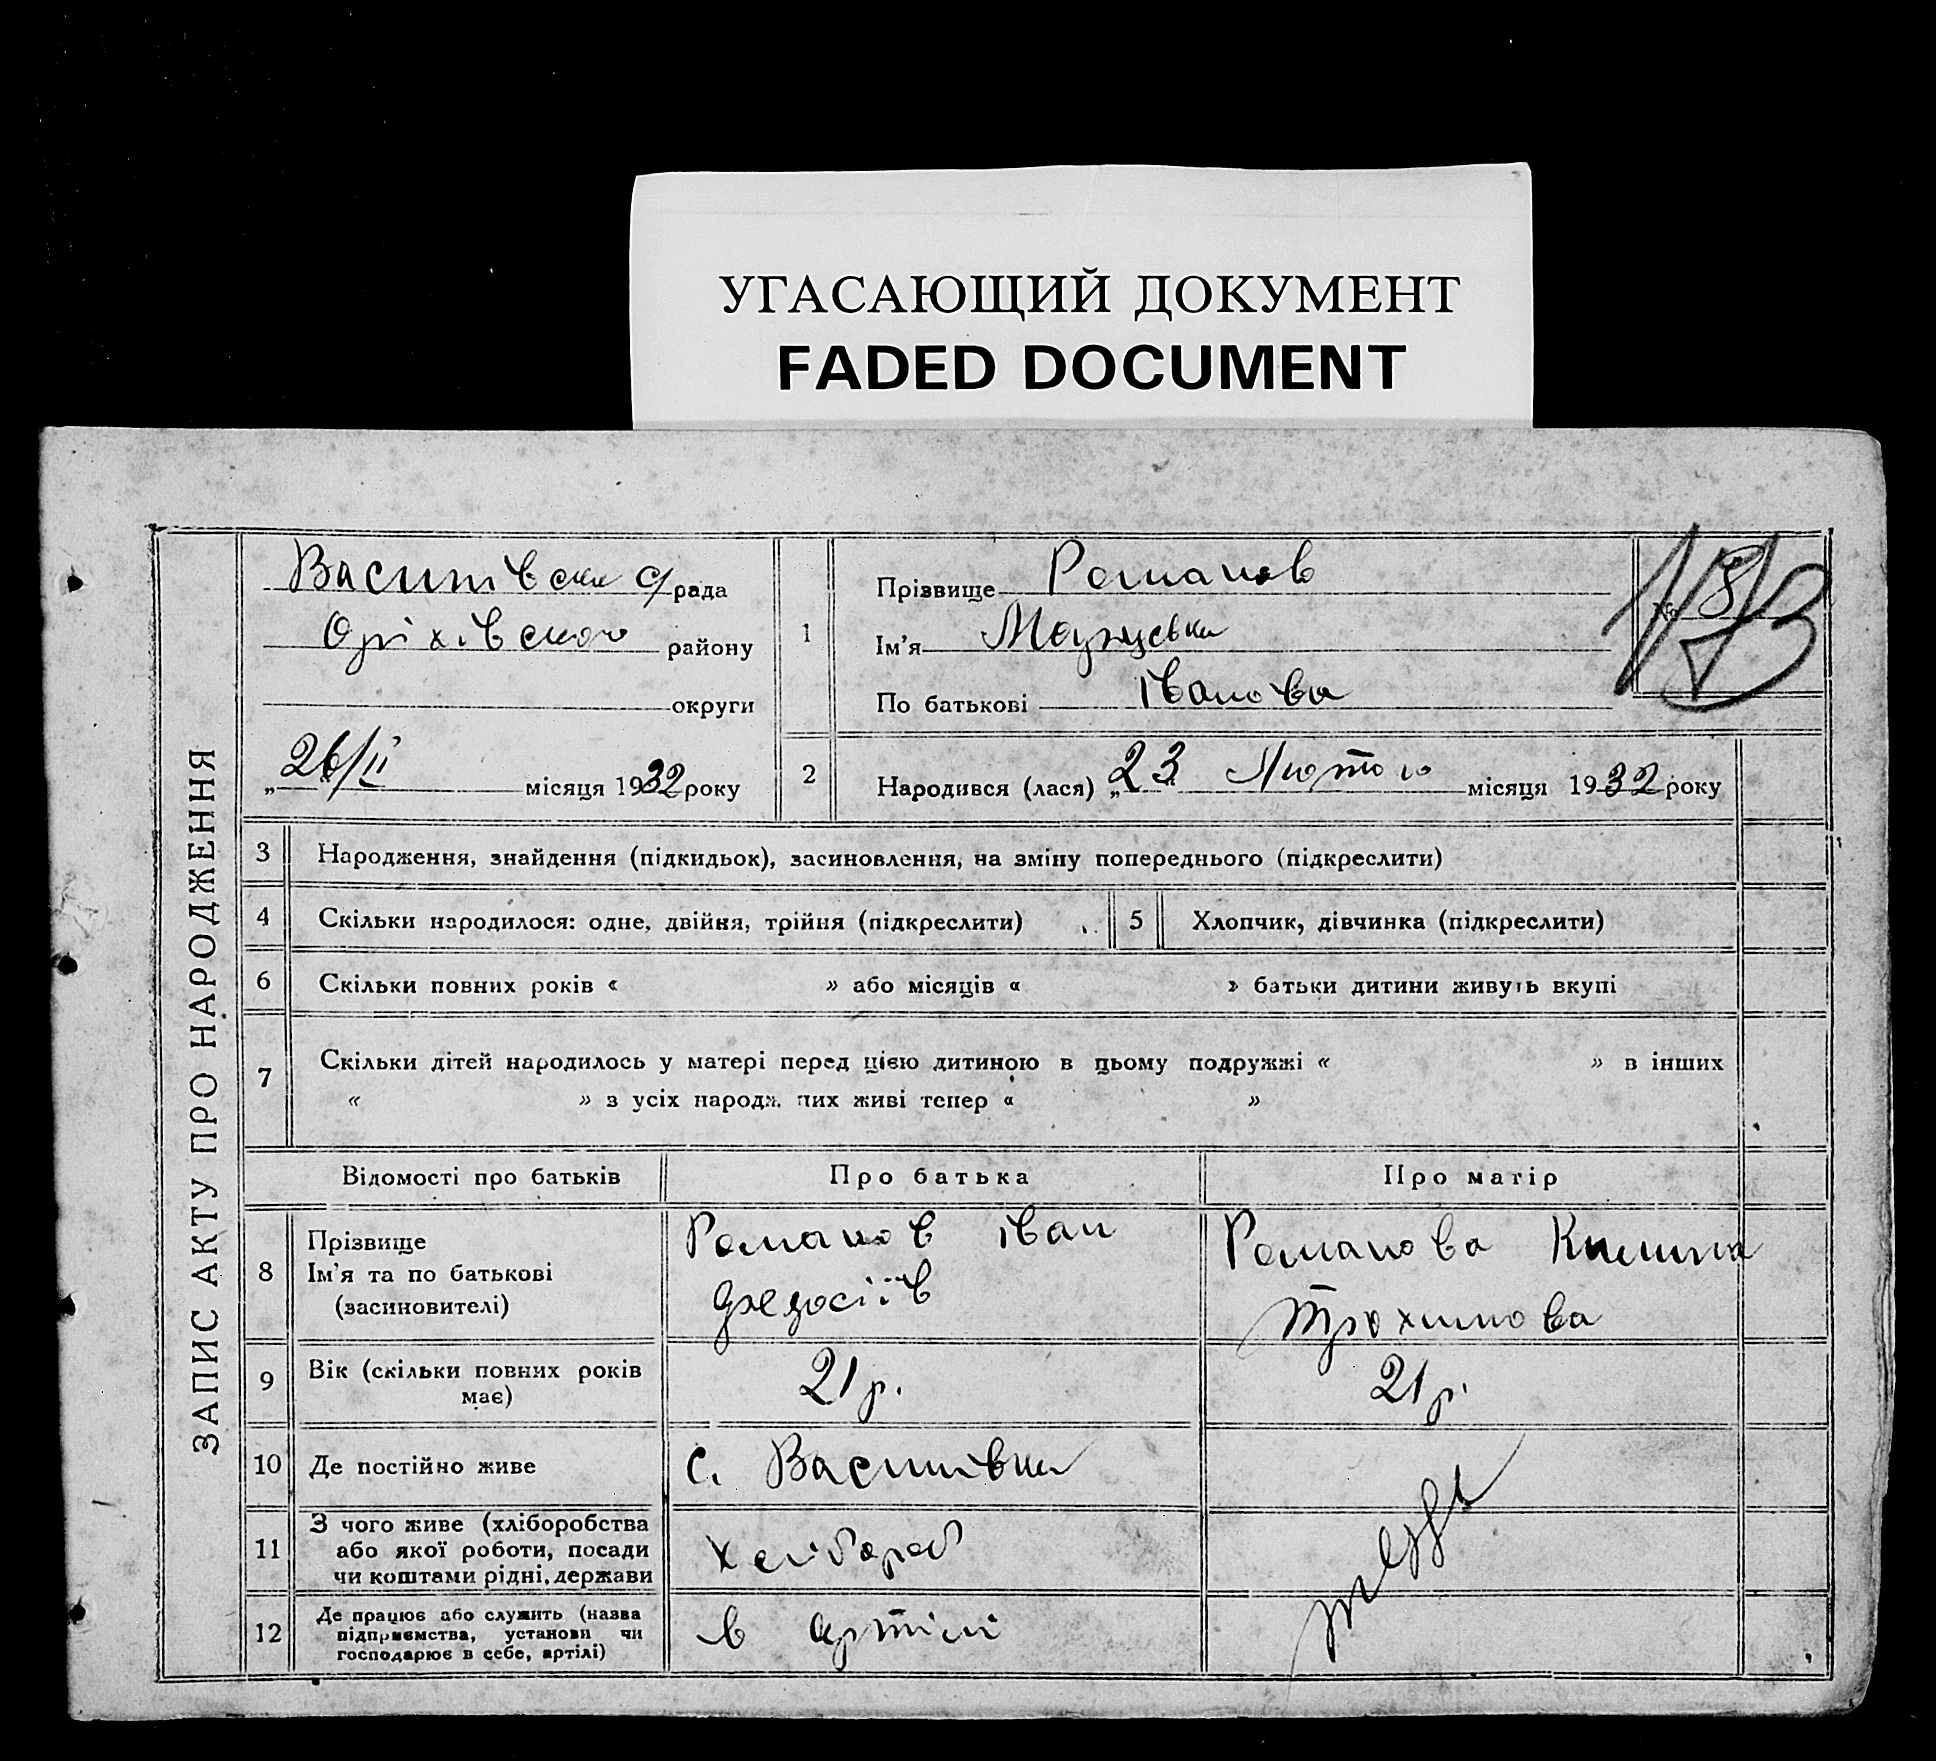 УГАСАЮЩИЙ ДОКУМЕНТ
FADED DOCUMENT
ЗАПИС АКТУ ПРО НАРОДЖЕННЯ
Василівська с/рада
Оріхівського району
округи
„ 26/II місяця 1932 року
1
Прізвище Романов
Ім'я
По батькові Іванова
№ 8
173
2
Народився (лася) „ 23 " Лютого місяця 1932 року
3 Народження, знайдення (підкидьок), засиновлення, на зміну попереднього (підкреслити)
4 Скільки народилося: одне, двійня, трійня (підкреслити)
5 Хлопчик, дівчинка (підкреслити)
6 Скільки повних років « » або місяців « » батьки дитини живуть вкупі
7 Скільки дітей народилось у матері перед цією дитиною в цьому подружжі « » в інших
« » з усіх народж. них живі тепер « »
Відомості про батьків Про батька Про матір
8 Прізвище
Ім'я та по батькові
(засиновителі)
Романов Іван
Федосіїв
Романова
Трохимова
9 Вік (скільки повних років
має)
21 р.
21 р.
10 Де постійно живе
с. Василівка
11 З чого живе (хліборобства
або якої роботи, посади
чи коштами рідні, держави
Хлібороб
12 Де працює або служить (назва
підприємства, установи чи
господарює в себе, артілі)
в артілі